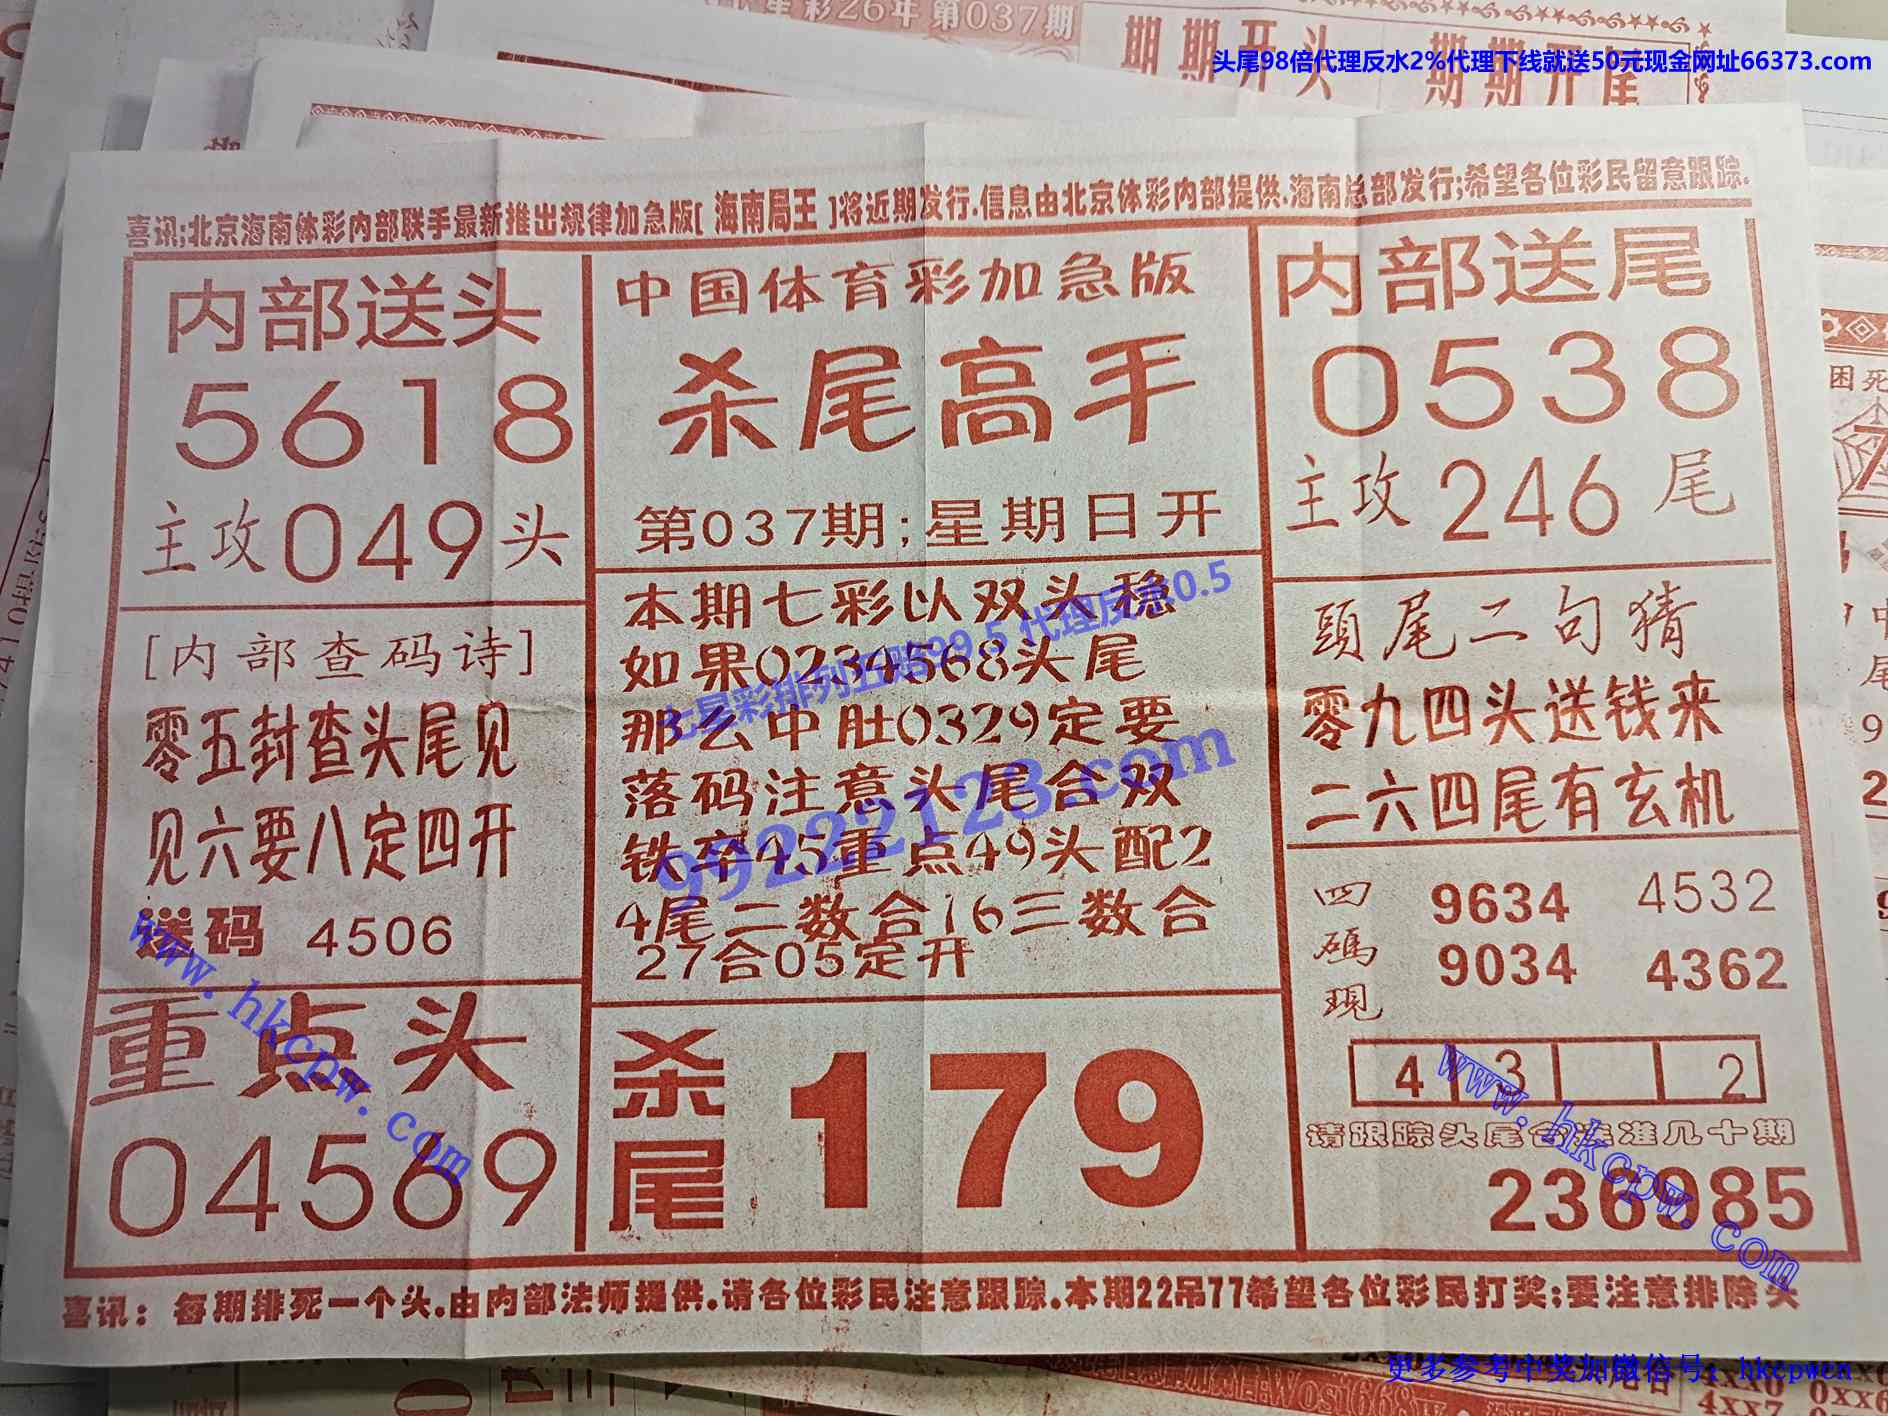 星彩26年第037期
期期开头
期期开尾
头尾98倍代理反水2%代理下线就送50元现金网址66373.com
喜讯;北京海南体彩内部联手最新推出规律加急版[海南局王]将近期发行.信息由北京体彩内部提供.海南总部发行;希望各位彩民留意跟踪.
内部送头
5618
主攻049头
[内部查码诗]
零五封查头尾见
见六要八定四开
送码 4506
重点头
04569
中国体育彩加急版
杀尾高手
第037期;星期日开
本期七彩以双头稳
如果0234568头尾
那么中肚0329定要
落码注意头尾合双
铁卒45重点49头配2
4尾二数合16三数合
27合05定开
杀尾 179
内部送尾
0538
主攻246尾
頭尾二句猜
零九四头送钱来
二六四尾有玄机
四碼現
9634 4532
9034 4362
4 3 2
请跟踪头尾合连准几十期
236985
喜讯:每期排死一个头.由内部法师提供.请各位彩民注意跟踪.本期22吊77希望各位彩民打奖;要注意排除头
七星彩排列五赔99.5代理反水0.5
99222123.com
www.hkcpw.com
www.hkcpw.com
更多参考中奖加微信号:hkcpwcn
困死
4XX6 0XX6
4XX7